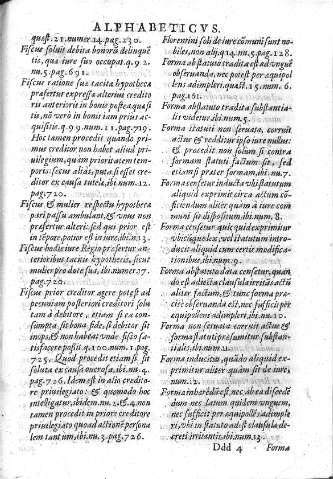 ALPHABETICVS.
quæst. 21. numer. 14. pag. 130.
Fiscus soluit debita bonorū delinquē
tis, qua iure suo occupat. q. 92.
nu. 5. pag. 691.
Fiscus ratione sua tacita hypotheca
præfertur expressa alterius credito
ris anterioris in bonis postea quæsi
tis, nō verò in bonis iam prius ac-
quisitis. q. 99. num. 11. pag. 719.
Hoc tamen procedit quando pri-
mus creditor non habet aliud pri-
uilegium, quàm prioritatem tem-
poris: secus alias, puta si esset cre-
ditor ex causa inuicta, ibi, num. 12.
pag. 720.
Fiscus & mulier respectu hypotheca
pari passu ambulant, & vnus non
præfertur alteri: sed qui prior est
in tēpore, potior est in iure, ibi, n. 13.
Fiscus hodie iure Regio præfertur an-
terioribus tacitis hypothecis, sicut
mulier pro dote sua, ibi numer. 17.
pag. 720.
Fiscus prior creditor agere potest ad
pecuniam posteriori creditori solu
tam à debitore, etiam si ea con-
sumpta sit bona fide, si debitor sit
inops, & non habeat vnde fisco sa-
tisfacere possit. q. 100. num. 1. pag.
725. Quod procedit etiam si sit
soluta ex causa onerosa, ibi nu. 4.
pag. 726. Idem est in alio credito-
re priuilegiato: & quomodo hoc
intelligatur, ibidem nu. 2. & 4. non
tamen procedit in priore creditore
priuilegiato quoad actionē persona
lem tantum, ibi. nu. 3. pag. 726.
Florentini soli de iure cōmuni sunt no-
biles, non alij. q. 14. nu. 5. pag. 128.
Forma abstatuto tradita est ad vnguē
obseruanda, nec potest per equipol
lens adimpleri. quæst. 15. num. 6.
pag. 161.
Forma abstatuto tradita substantia-
lis videtur, ibi num. 5.
Forma statuti non seruata, corruit
actus & redditur ipso iure nullus:
& procedit non solum si contra
formam statuti factum sit, sed
etiam si præter factum, ibi nu. 7.
Forma censetur inducta vbi statutum
aliquid exprimit circa actum cō-
ficiendum aliter, quam à iure com
muni sit dispositum, ibi num. 8.
Forma censetur quis quid exprimitur
vbicunque lex vel statutum intro-
ducit aliquid cum certis modifica-
tionibus, ibi num. 9.
Forma abstatuto data censetur, quan
do est adiecta clausula irritās actū
aliter factum, & tunc forma præ-
cise obseruanda est, nec sufficit per
æquipollens adimpleri, ibi, nu. 10.
Forma non seruata corruit actus &
forma statuti præsumitur substan-
tialis, ibi num. 11.
Forma inducitur, quādo aliquid ex-
primitur aliter quàm sit de iure,
num. 12.
Forma inhærēdū est, nec ab ea discedē
dum nec latum quidem vnguem,
nec sufficit per æquipollēs adimple
ri, vbi in statuto adest clausula de-
creti irritantis, ibi num. 13.
Ddd 4 Forma